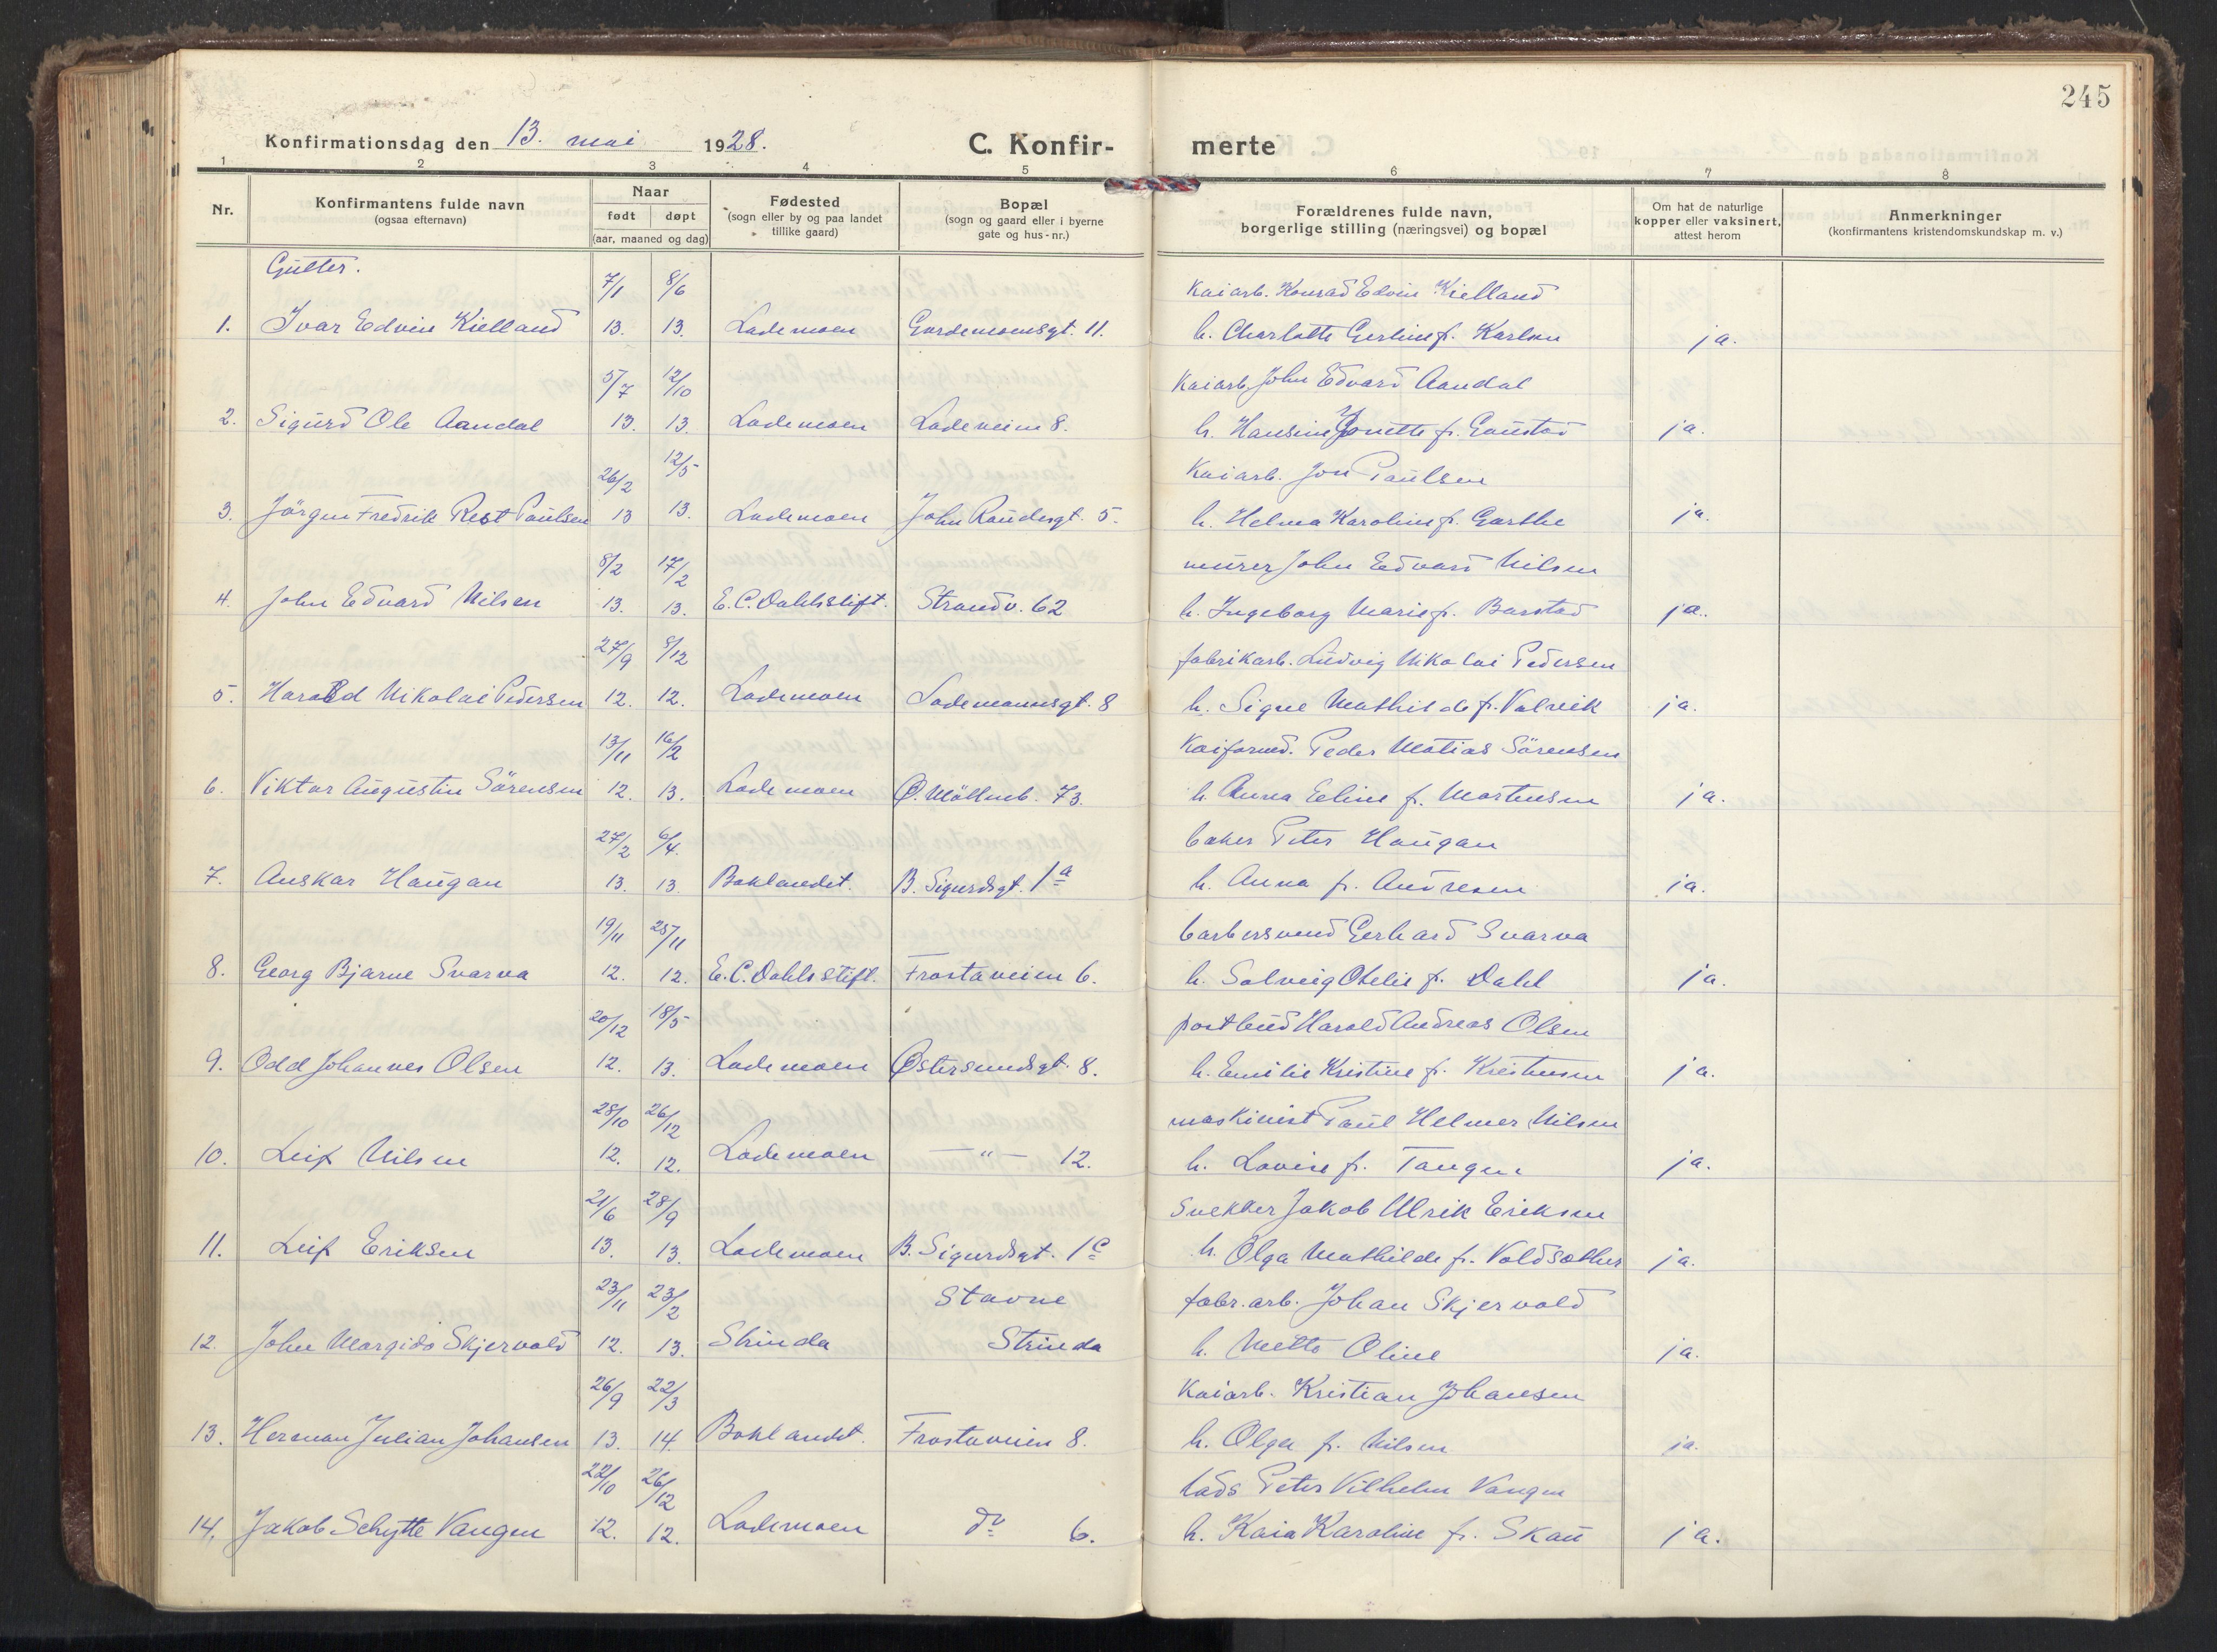 245
Konfirmationsdag den 13. mai 1928.
C. Konfir-
merte
1 2 3 4 5 6 7 8
Nr.
Konfirmantens fulde navn
(ogsaa efternavn)
Naar
født døpt
(aar, maaned og dag)
Fødested
(sogn eller by og paa landet
tillike gaard)
Bopæl
(sogn og gaard eller i byerne
gate og hus-nr.)
Forældrenes fulde navn,
borgerlige stilling (næringsvei) og bopæl
Om hat de naturlige
kopper eller vaksinert,
attest herom
Anmerkninger
(konfirmantens kristendomskundskap m. v.)
Gutter.
7/1 8/6 Kaiarb. Konrad Edvin Kielland
1. Ivar Edvin Kielland 13. 13. Lademoen Gardemoensgt. 11. h. Charlotte Gerline f. Karlsen ja.
5/7 12/10 Kaiarb. John Edvard Aandal
2. Sigurd Ole Aandal 13. 13. Lademoen Ladeveien 8. h. Hansine Jonette f. Gaustad ja.
26/2 12/5 Kaiarb. Jon Paulsen
3. Jörgen Fredrik Rest Paulsen 13 13. Lademoen John Raudesgt. 5. h. Helma Karoline f. Garthe ja.
8/2 17/2 murer John Edvard Nilsen
4. John Edvard Nilsen 13. 13. E. C. Dahls stift. Strandv. 62 h. Ingeborg Marie f. Barstad ja.
27/9 8/12 fabrikarb. Ludvig Nikolai Pedersen
5. Harald Nikolai Pedersen 12. 12. Lademoen Lademannsgt. 8 h. Signe Mathilde f. Valreik ja.
13/11 16/2 Kaiformd. Peder Matias Sörensen
6. Viktor Augustin Sörensen 12. 13. Lademoen Ø. Möllenb. 73. h. Anna Eline f. Mortensen ja.
27/2 6/4. baker Peter Haugan
7. Anskar Haugan 13. 13. Baklandet. B. Sigurdsgt. 1a h. Anna f. Andresen ja.
19/11 25/11 barbersvend Gerhard Svarva
8. Georg Bjarne Svarva 12. 12. E. C. Dahls stift. Frostaveien 6. h. Solveig Otelie f. Dahl ja.
20/12 18/5 postbud Harald Andreas Olsen
9. Odd Johannes Olsen 12. 13. Lademoen Østersundsgt. 8. h. Emilie Kristine f. Kristensen ja.
28/10 26/12 maskinist Paul Helmer Nilsen
10. Leif Nilsen 12. 12. Lademoen — " — 12. h. Lovise f. Tangen ja.
21/6 28/9 Snekker Jakob Ulrik Eriksen
11. Leif Eriksen 13. 13. Lademoen B. Sigurdsgt. 1c h. Olga Mathilde f. Voldsæther ja.
23/11 23/2 Stavne fabr. arb. Johan Skjervold
12. John Margido Skjervold 12. 13. Strinda Strinda h. Mette Oline ja.
26/9 22/3 Kaiarb. Kristian Johansen
13. Herman Julian Johansen 13. 14. Baklandet. Frostaveien 8. h. Olga f. Nilsen ja.
22/10 26/12 lads Peter Vilhelm Vangen
14. Jakob Schytte Vangen 12. 12. Lademoen do 6. h. Kaia Karoline f. Skau ja.